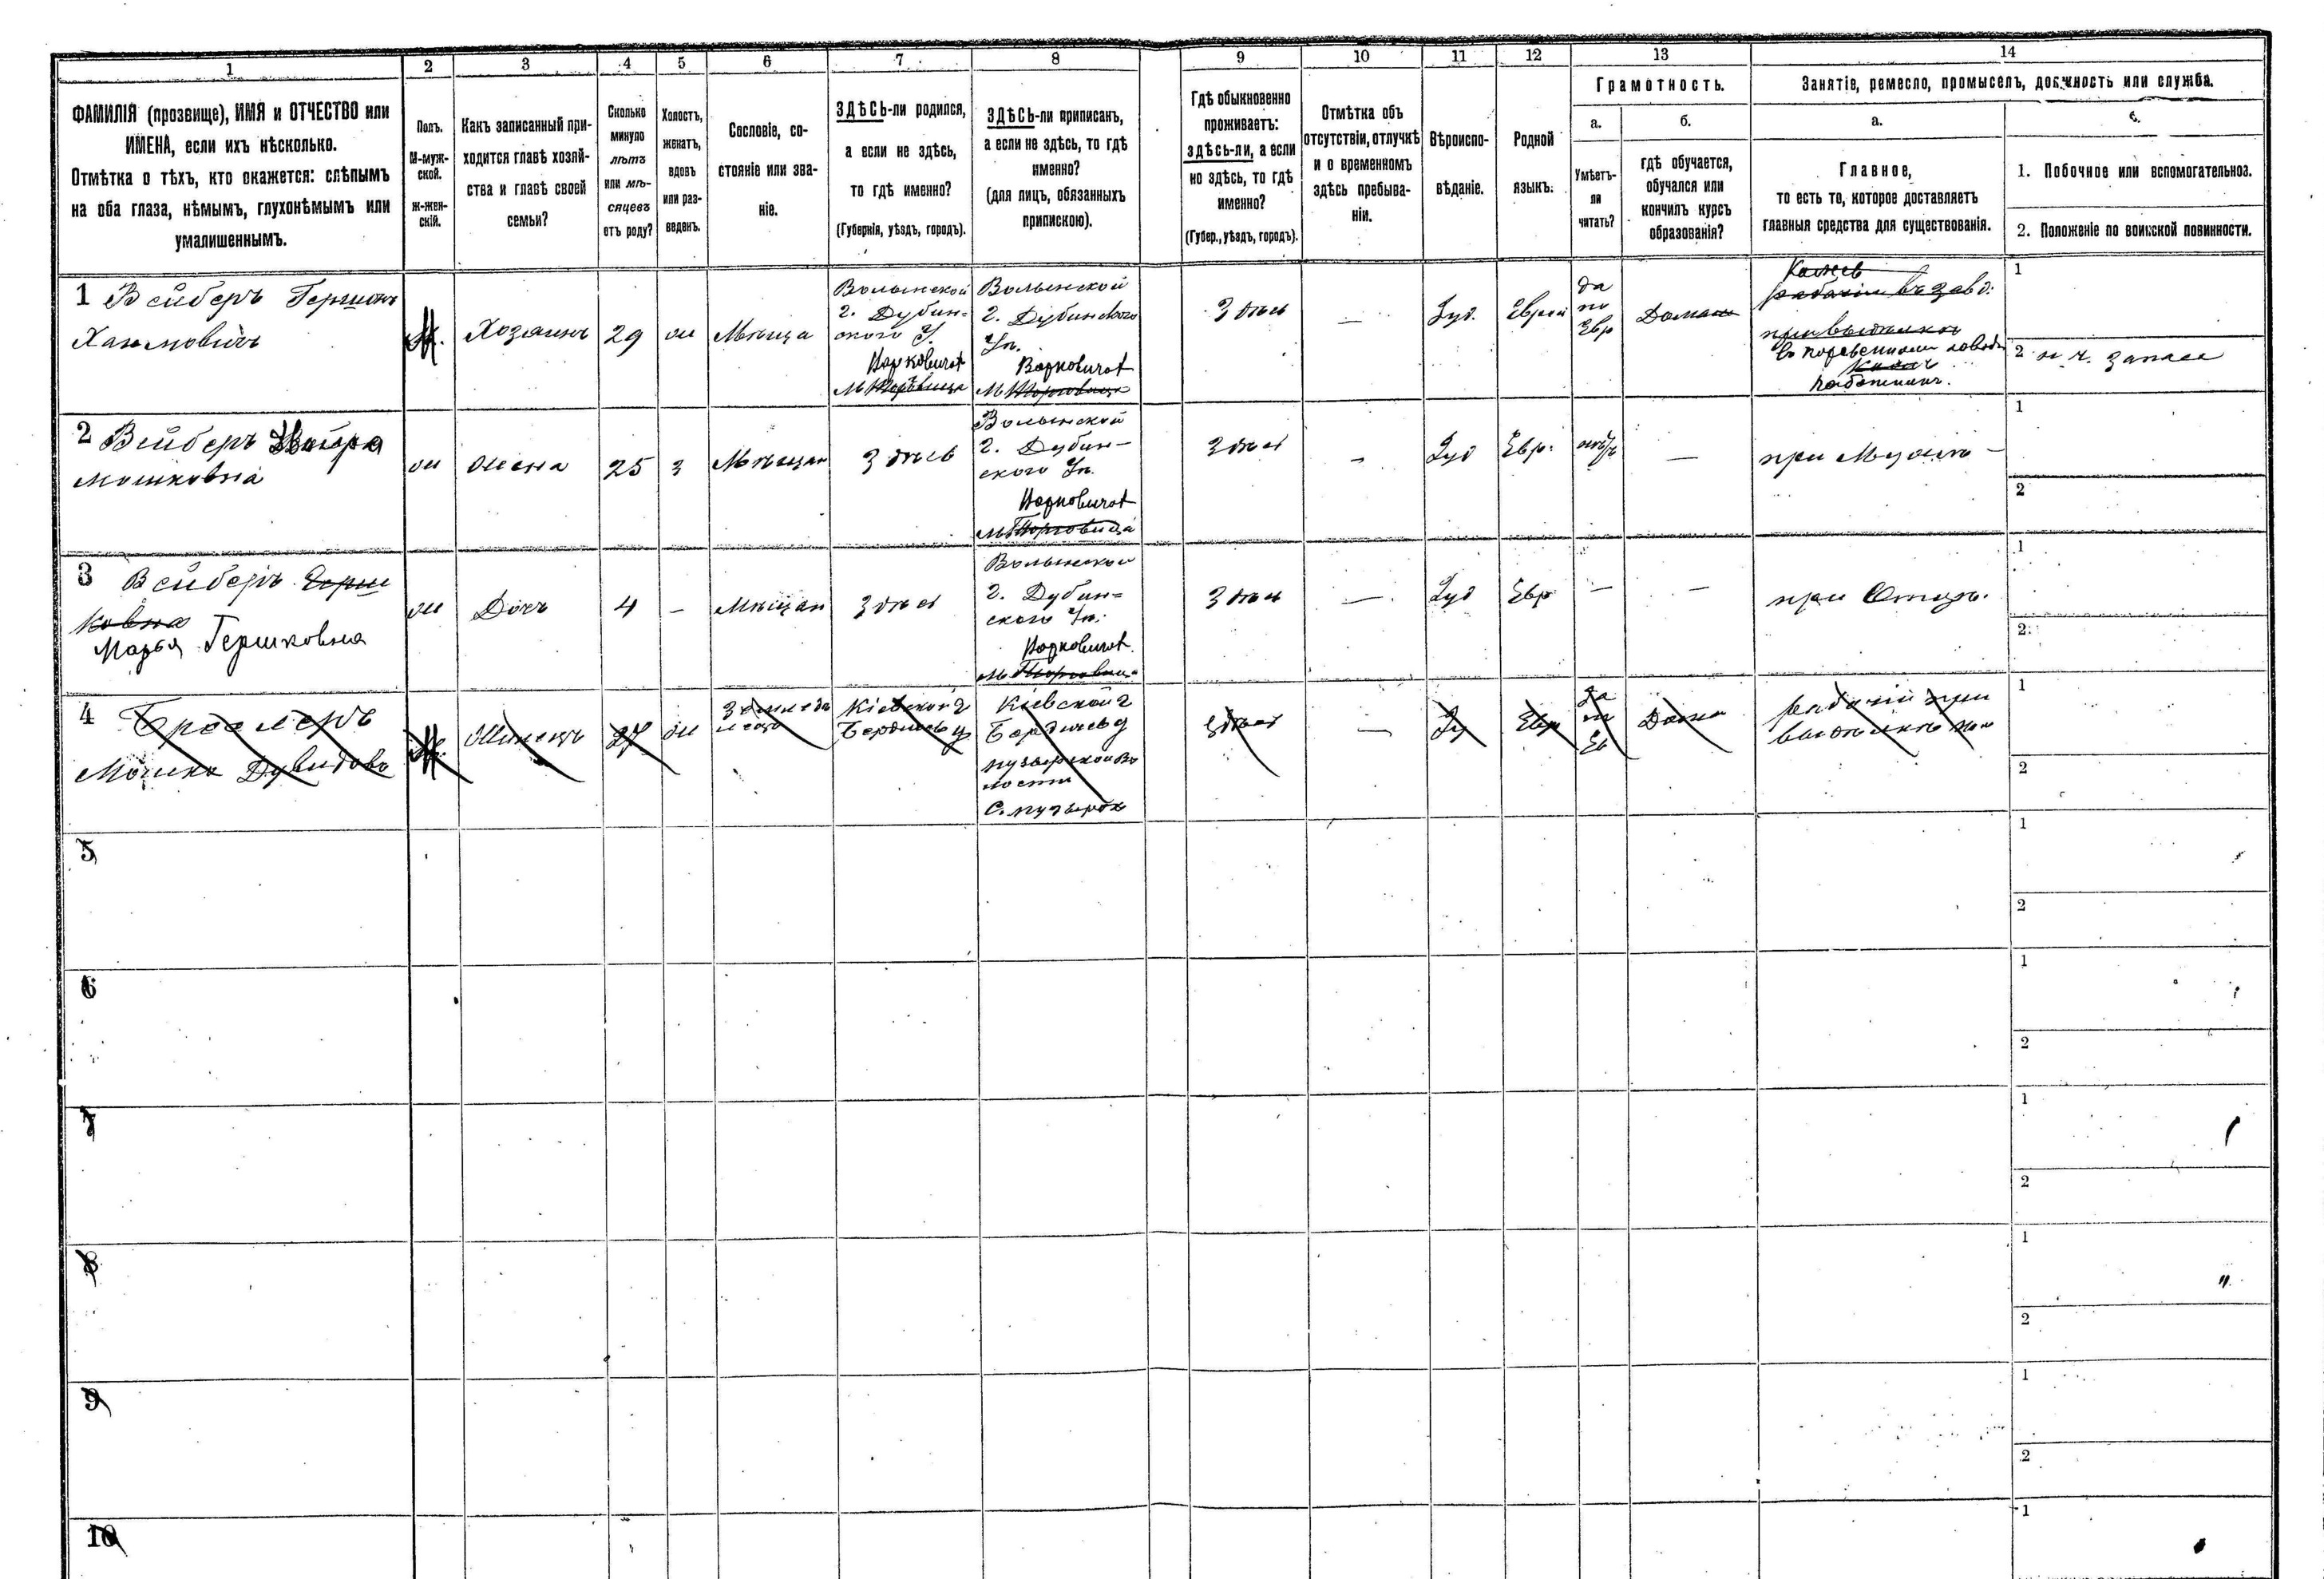 1 2 3 4 5 6 7 8 9 10 11 12 13 14
ФАМИЛІЯ (прозвище), ИМЯ и ОТЧЕСТВО или
ИМЕНА, если ихъ нѣсколько.
Отмѣтка о тѣхъ, кто окажется: слѣпымъ
на оба глаза, нѣмымъ, глухонѣмымъ или
умалишеннымъ.
Полъ.
М-муж-
ской.
ж-жен-
скій.
Какъ записанный при-
ходится главѣ хозяй-
ства и главѣ своей
семьи?
Сколько
минуло
лѣтъ
или мѣ-
сяцевъ
отъ роду?
Холостъ,
женатъ,
вдовъ
или раз-
веденъ.
Сословіе, со-
стояніе или зва-
ніе.
ЗДѢСЬ-ли родился,
а если не здѣсь,
то гдѣ именно?
(Губернія, уѣздъ, городъ).
ЗДѢСЬ-ли приписанъ,
а если не здѣсь, то гдѣ
именно?
(для лицъ, обязанныхъ
припискою).
Гдѣ обыкновенно
проживаетъ:
здѣсь-ли, а если
не здѣсь, то гдѣ
именно?
(Губер., уѣздъ, городъ).
Отмѣтка объ
отсутствіи, отлучкѣ
и о временномъ
здѣсь пребыва-
ніи.
Вѣроиспо-
вѣданіе.
Родной
языкъ.
Грамотность.
а.
Умѣетъ-
ли
читать?
б.
гдѣ обучается,
обучался или
кончилъ курсъ
образованія?
Занятіе, ремесло, промыселъ, должность или служба.
а.
Главное,
то есть то, которое доставляетъ
главныя средства для существованія.
1. Побочное или вспомогательное.
2. Положеніе по воинской повинности.
1 Вейберъ Гершон
Хаимовичъ
М.
Хозяинъ
29
ж
Мѣща
Волынской
г. Дубин-
ского У.
Варковичах
Волынской
г. Дубинского
Уѣ.
Варковичах
Здѣсь
—
Іуд.
Еврей
да
по
Евр
Дома
рабочій въ завд.
работникъ.
1
2 н ч. запаса
2 Вейберъ
Мошковна
ж
жена
25
з
Мѣщан
Здѣсь
Волынской
г. Дубин-
ского Уѣ.
Варковичах
Здѣсь
-
Іуд
Евр.
нѣтъ
—
при Мужѣ -
1
2
3 Вейберъ Герш
ковна
Марья Гершковна
ж
Дочь
4
-
Мѣщан
Здѣсь
Волынской
г. Дубин=
ского Уѣ.
Варковичах.
Здѣсь
—.
Іуд
Евр
—
—
при Отцѣ.
1
2
4
Мошко Дувидовъ
М.
27
ж
Кіевской г
Бердичев у
Кіевской г
Бердичев у
С. пузырок
Здѣсь
—
Іу
Евр
да
Ев
Дома
рабочій при
1
2
5
1
2
6
1
2
7
1
2
8
1
2
9
1
2
10
1